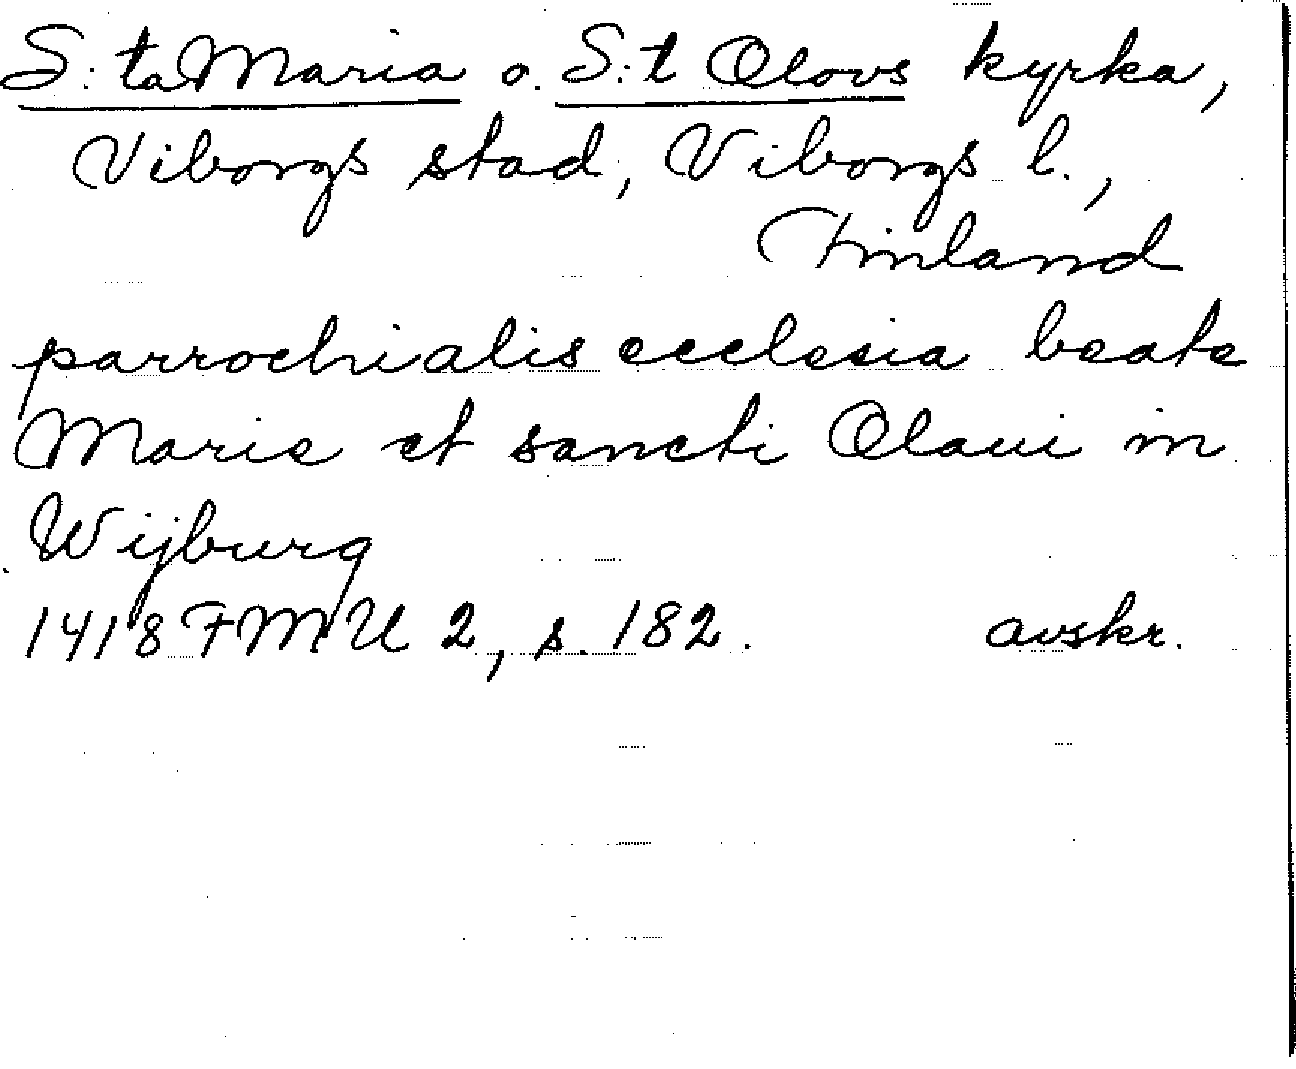 S:ta Maria o. S:t Olovs kyrka,
Viborgs stad, Viborgs l.,
Finland
parrochialis ecclesia beate
Marie et sancti Olaui in
Wijburg
1418 FMU 2, s. 182. avskr.